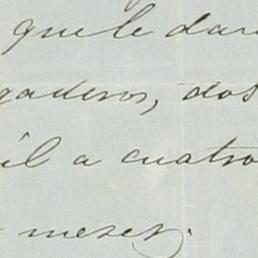 que le dar
gaderos, dos
il a cuatro
meses.